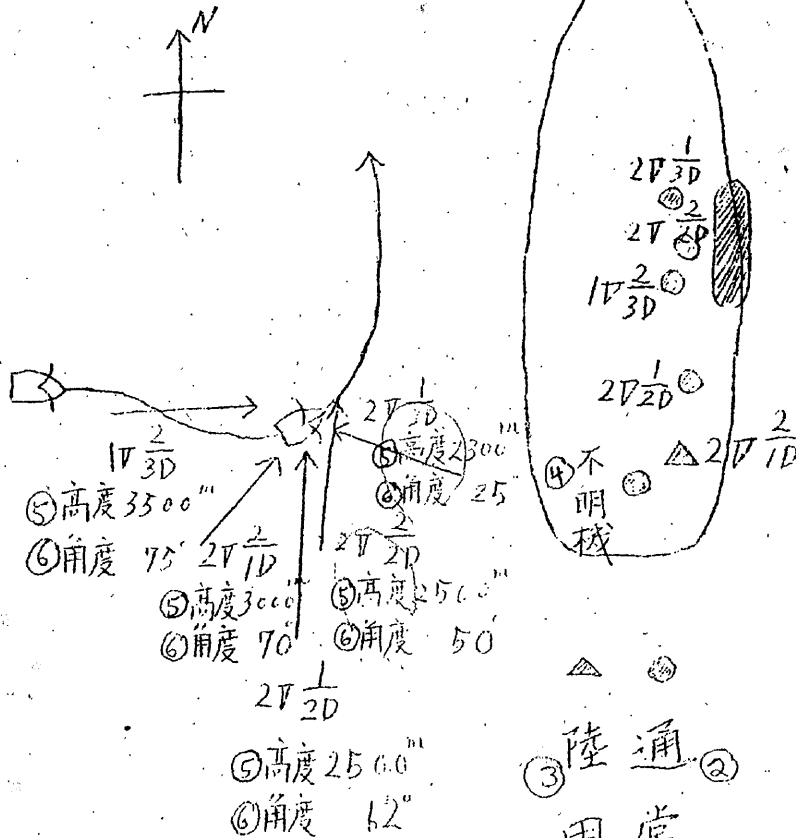 N
2▽ 1/3D
2▽ 2/2D
1▽ 2/3D
2▽ 1/2D
2▽ 2/1D
④不明機
1▽ 2/3D
⑤高度3500m
⑥角度 75°
2▽ 2/1D
⑤高度3000m
⑥角度 70°
2▽ 1/3D
⑤高度2300m
⑥角度 25°
2▽ 2/2D
⑤高度2500m
⑥角度 50°
2▽ 1/2D
⑤高度2500m
⑥角度 62°
③陸用
②通常